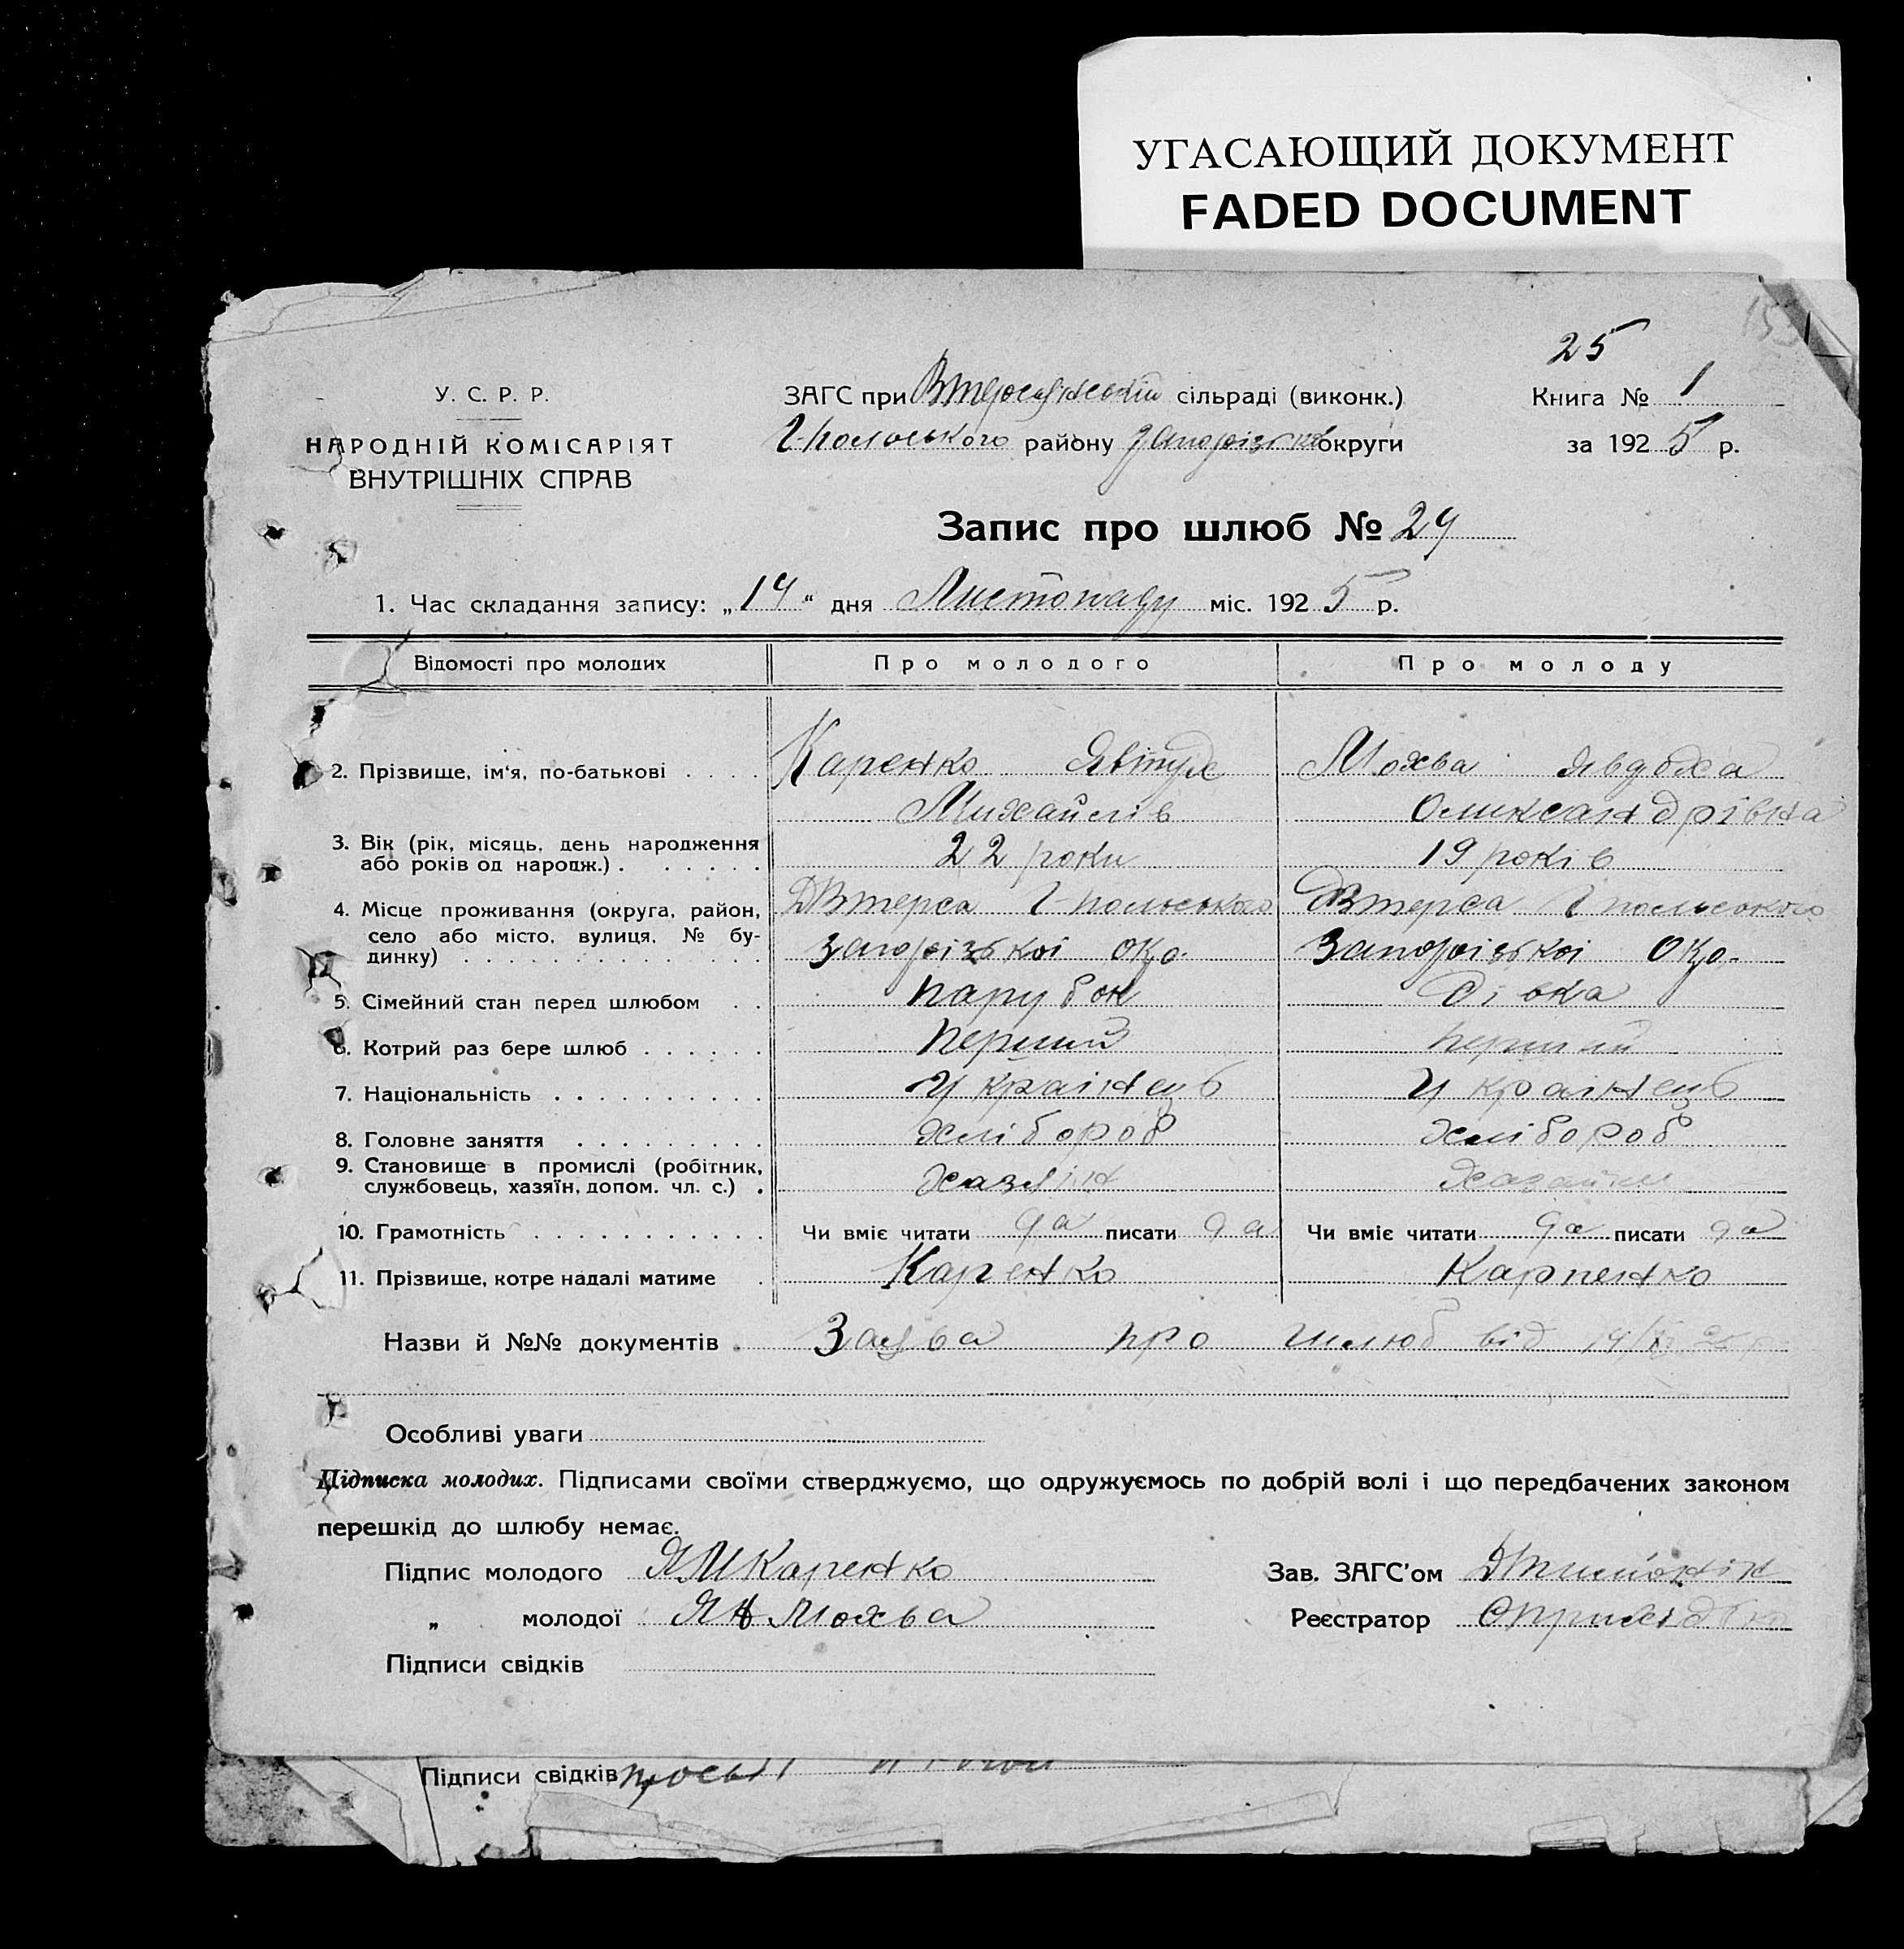 УГАСАЮЩИЙ ДОКУМЕНТ
FADED DOCUMENT
25
У. С. Р. Р.
НАРОДНІЙ КОМІСАРІЯТ
ВНУТРІШНІХ СПРАВ
ЗАГС при сільраді (виконк.)
району округи
Книга № 1
за 1925 р.
Запис про шлюб № 24
1. Час складання запису: „14“ дня Листопаду міс. 1925 р.
Відомості про молодих Про молодого Про молоду
2. Прізвище, ім‘я, по-батькові Каренко Явтух Мохва Явдоха
Михайлів Олександрівна
3. Вік (рік, місяць, день народження
або років од народж.) 22 роки 19 років
4. Місце проживання (округа, район,
село або місто, вулиця, № бу-
динку) Запорізької Окр. Запорізької Окр.
5. Сімейний стан перед шлюбом Парубок Дівка
6. Котрий раз бере шлюб Перший Перший
7. Національність Українець Українець
8. Головне заняття Хлібороб Хлібороб
9. Становище в промислі (робітник,
службовець, хазяїн, допом. чл. с.) Хазяїн
10. Грамотність Чи вміє читати да писати да Чи вміє читати да писати да
11. Прізвище, котре надалі матиме Каренко Карпенко
Назви й №№ документів Заява про шлюб від 14/XI 25 р
Особливі уваги
Підписка молодих. Підписами своїми стверджуємо, що одружуємось по добрій волі і що передбачених законом
перешкід до шлюбу немає.
Підпис молодого ЯМКаренко Зав. ЗАГС’ом
„ молодої Мохва Реєстратор
Підписи свідків
Підписи свідків